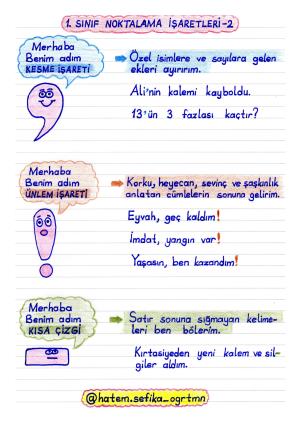 1. SINIF NOKTALAMA İŞARETLERİ-2
Merhaba
Benim adım
KESME İŞARETİ
Özel isimlere ve sayılara gelen
ekleri ayırırım.
Ali'nin kalemi kayboldu.
13'ün 3 fazlası kaçtır?
Merhaba
Benim adım
ÜNLEM İŞARETİ
Korku, heyecan, sevinç ve şaşkınlık
anlatan cümlelerin sonuna gelirim.
Eyvah, geç kaldım!
İmdat, yangın var!
Yaşasın, ben kazandım!
Merhaba
Benim adım
KISA ÇİZGİ
Satır sonuna sığmayan kelime-
leri ben bölerim.
Kırtasiyeden yeni kalem ve sil-
giler aldım.
@hatem.sefika_ogrtmn